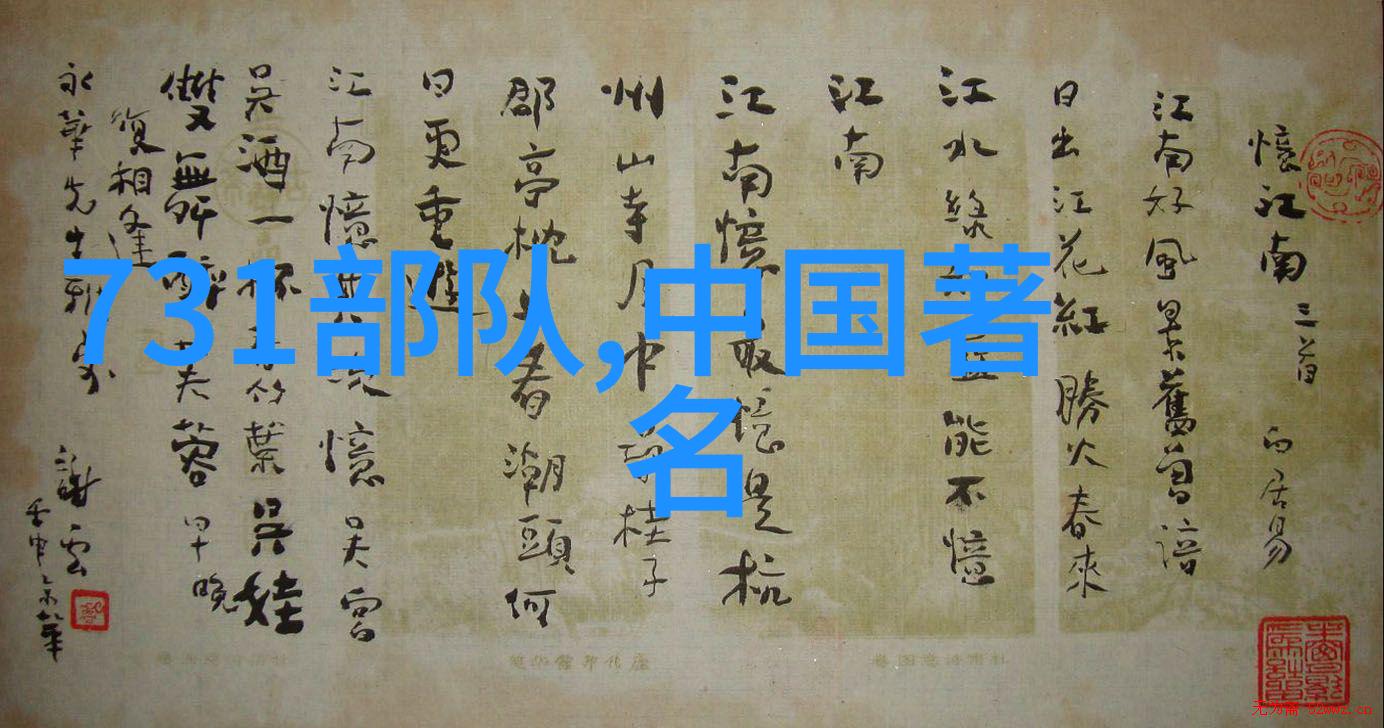 憶江南 三首 白居易
江南好風景舊曾諳
日出江花紅勝火春來
江水綠
能不憶
江南
江南憶最憶是杭
州山寺月中尋桂子
郡亭枕上看潮頭何
日更重遊
江南憶其次憶吳宮
吳酒一杯春竹葉吳娃
雙舞醉芙蓉早晚
復相逢
永華先生
謝雲
731部队,中国著
名